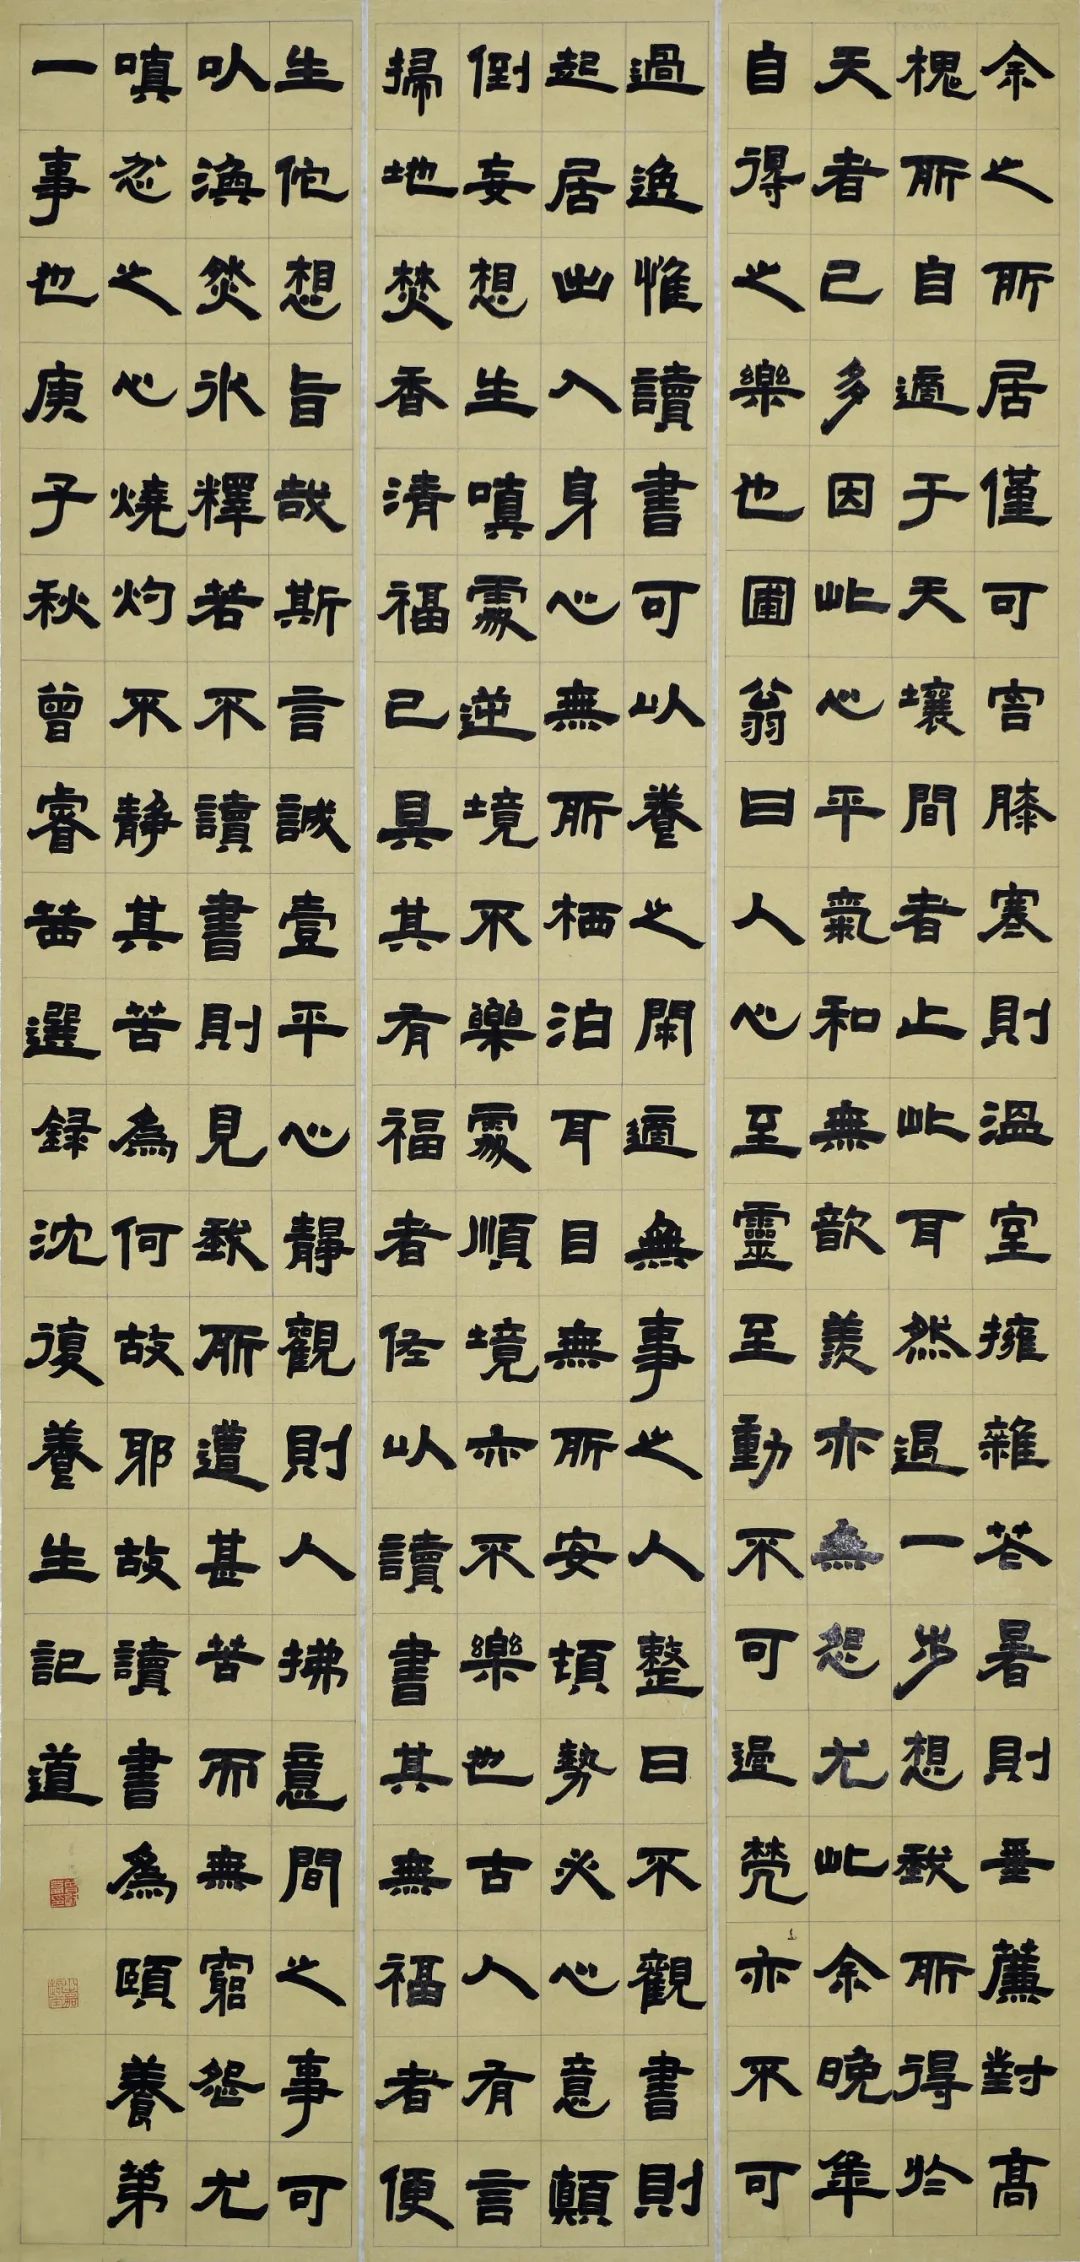 余之所居僅可容膝寒則溫室擁雜花暑則垂簾對高
槐所自適于天壤間者止此耳然退一步想我所得於
天者已多因此心平氣和無歆羨亦無怨尤此余晚年
自得之樂也圃翁曰人心至靈至動不可過勞亦不可
過逸惟讀書可以養之閑適無事之人整日不觀書則
起居出入身心無所栖泊耳目無所安頓勢必心意顛
倒妄想生嗔處逆境不樂處順境亦不樂也古人有言
掃地焚香清福已具其有福者佐以讀書其無福者便
生他想旨哉斯言誠壹平心靜觀則人拂意間之事可
以渙然冰釋若不讀書則見我所遭甚苦而無窮怨尤
嗔忿之心燒灼不靜其苦為何故耶故讀書為頤養第
一事也庚子秋曾睿茜選錄沈復養生記道